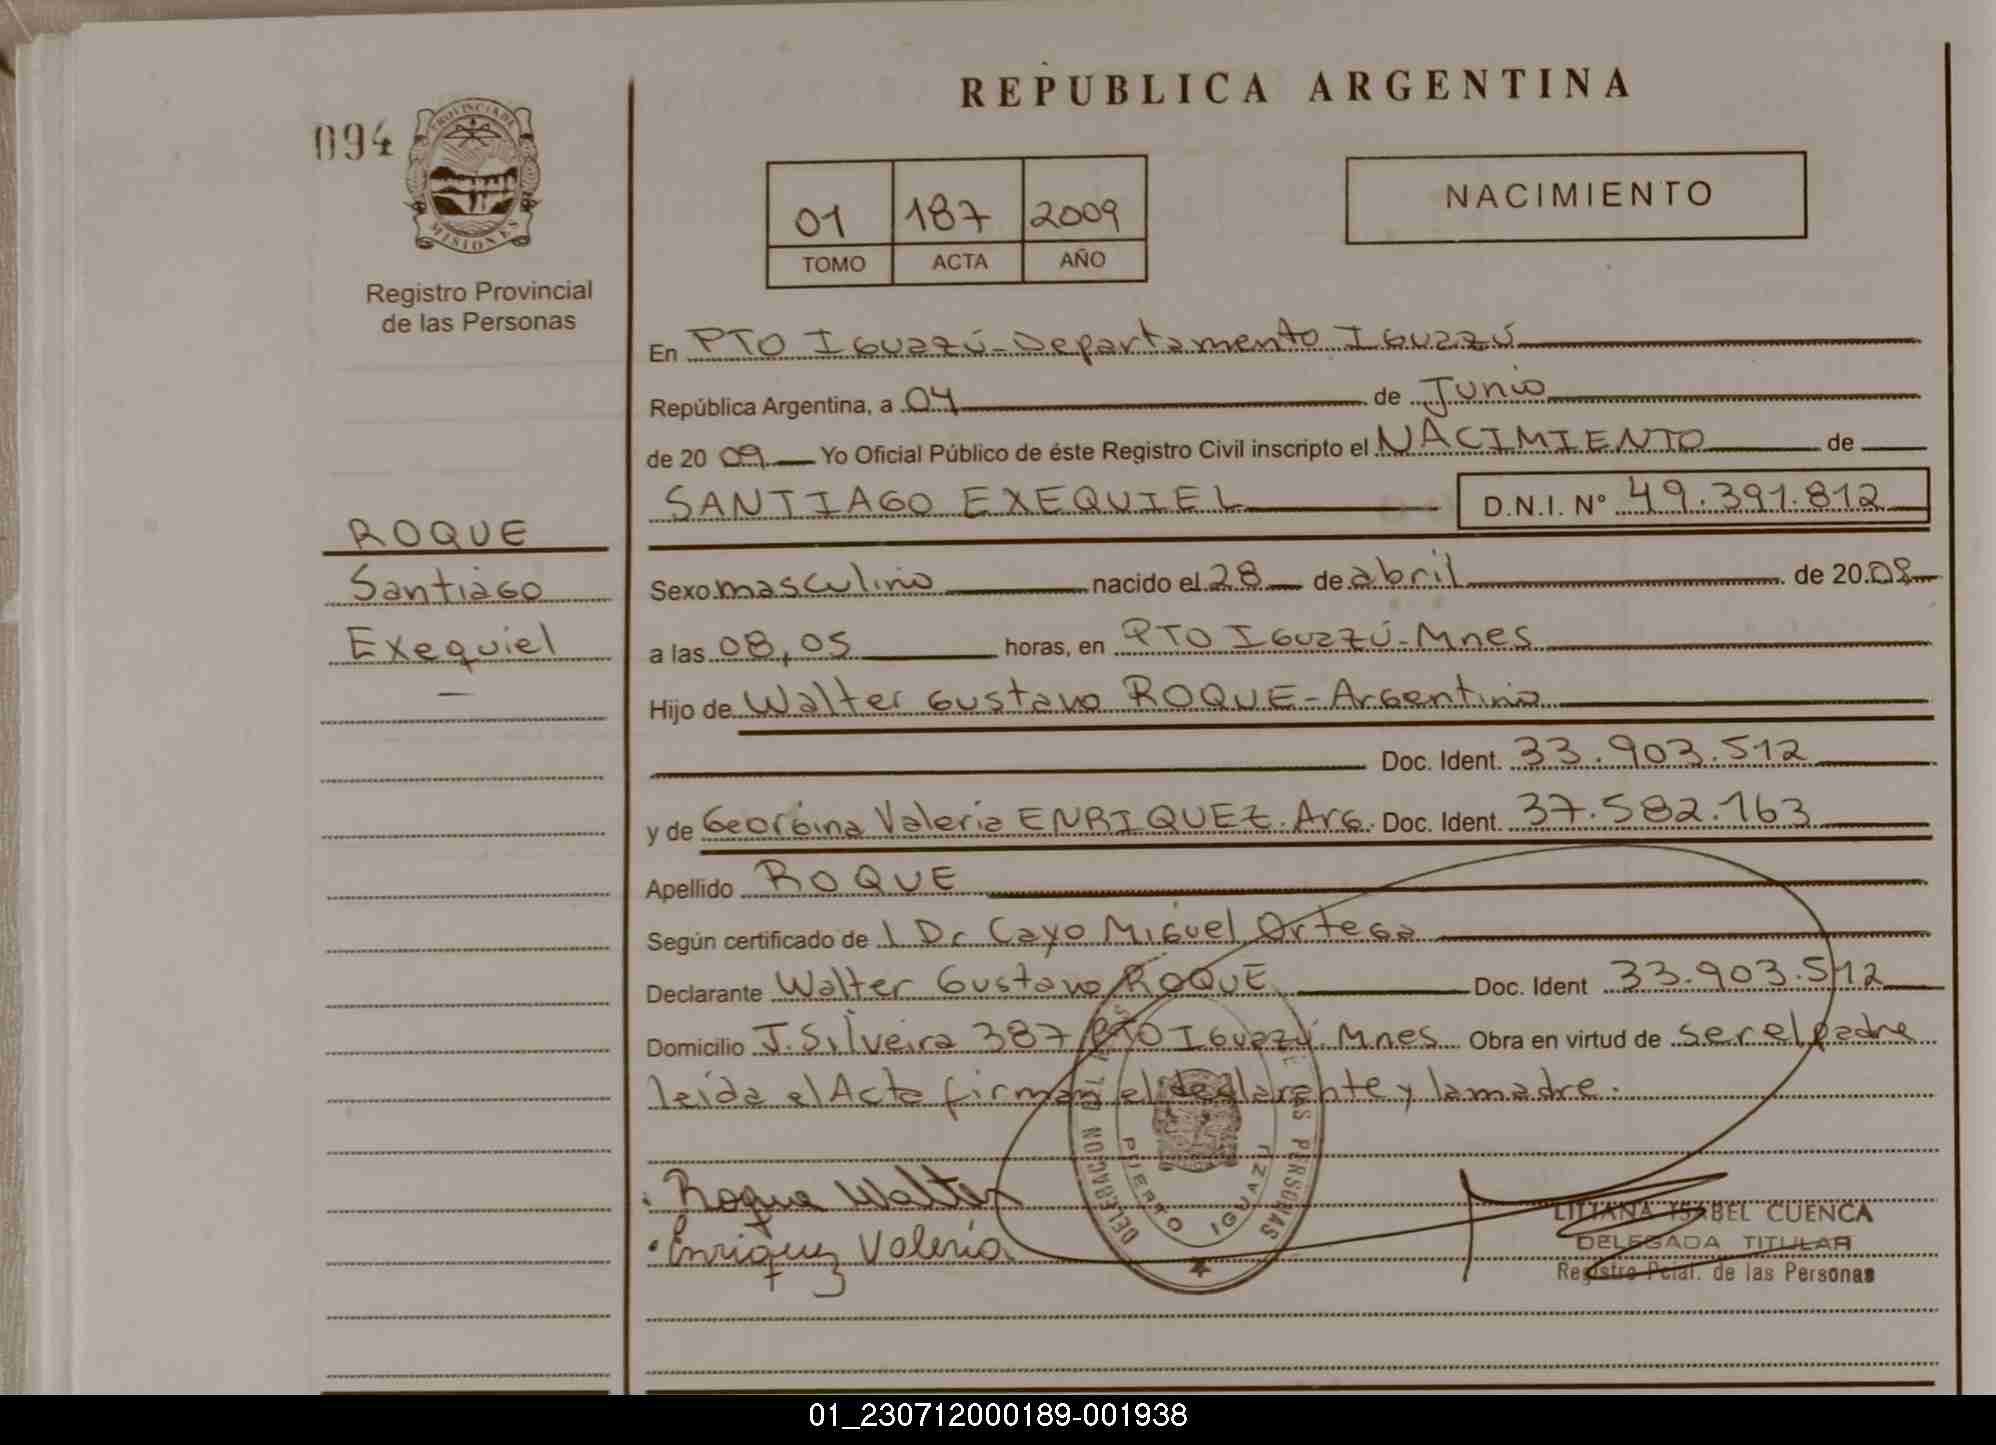 REPUBLICA ARGENTINA
094
PROVINCIA DE
MISIONES
Registro Provincial
de las Personas
01 187 2009
TOMO ACTA AÑO
NACIMIENTO
En PTO Iguazú - Departamento Iguazú
República Argentina, a 04 de Junio
de 20 09 Yo Oficial Público de éste Registro Civil inscripto el NACIMIENTO de
SANTIAGO EXEQUIEL D.N.I. N° 49.391.812
ROQUE
Santiago
Exequiel
Sexo masculino nacido el 28 de abril de 20.09
a las 08,05 horas, en PTO Iguazú - Mnes
Hijo de Walter Gustavo ROQUE - Argentino
Doc. Ident. 33.903.512
y de Georgina Valeria ENRIQUEZ. Arg. Doc. Ident. 37.582.163
Apellido ROQUE
Según certificado de l Dr Cayo Miguel Ortega
Declarante Walter Gustavo ROQUE Doc. Ident 33.903.512
Domicilio J. Silveira 387 PTO Iguazú. Mnes Obra en virtud de ser el padre
leída el Acta firman el declarante y la madre.
Roque Walter
Enriquez Valeria
PUERTO IGUAZU
LILIANA ISABEL CUENCA
DELEGADA TITULAR
Registro Pcial. de las Personas
01_230712000189-001938